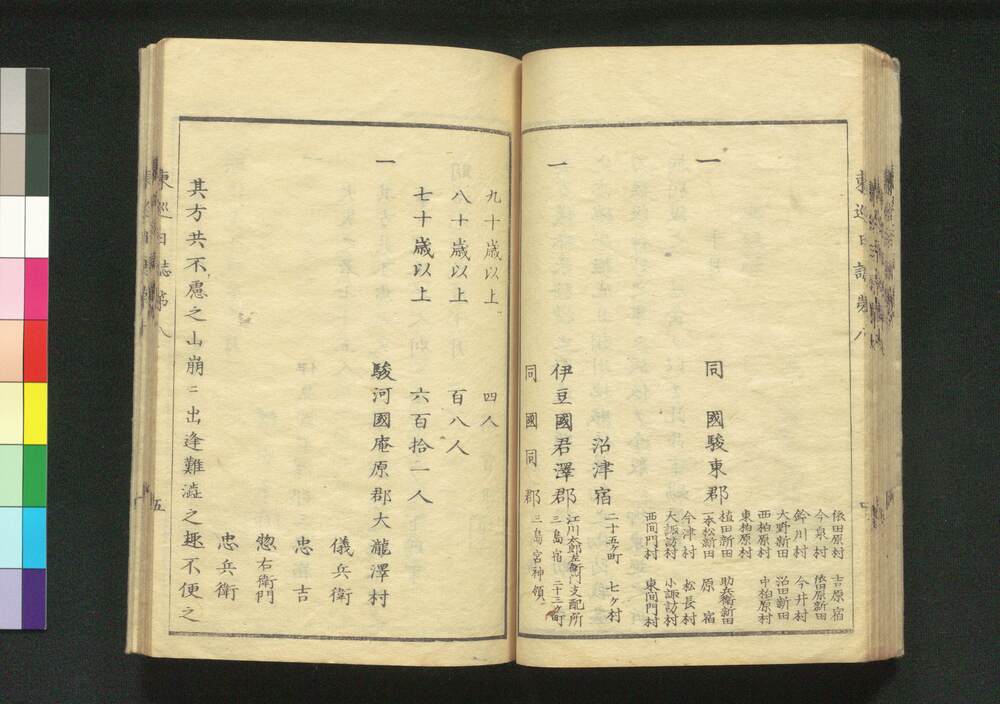 依田原村 吉原宿
今泉村 依田原新田
鈴川村 今井村
大野新田 沼田新田
西柏原村 中柏原村
東柏原村
一 同國駿東郡
植田新田 助兵衛新田
一本松新田 原宿
今津村 松長村
大諏訪村 小諏訪村
西間門村 東間門村
沼津宿 二十五ヶ町 七ヶ村
一 伊豆國君澤郡 江川太郎左衛門支配所
三島宿 二十三ヶ町
同國同郡 三島宮神領
九十歳以上 四人
八十歳以上 百八人
七十歳以上 六百拾一人
一 駿河國庵原郡大瀧澤村
儀兵衛
忠吉
惣右衛門
忠兵衛
其方共不慮之山崩ニ出逢難澁之趣不便之
東巡日誌第八
五